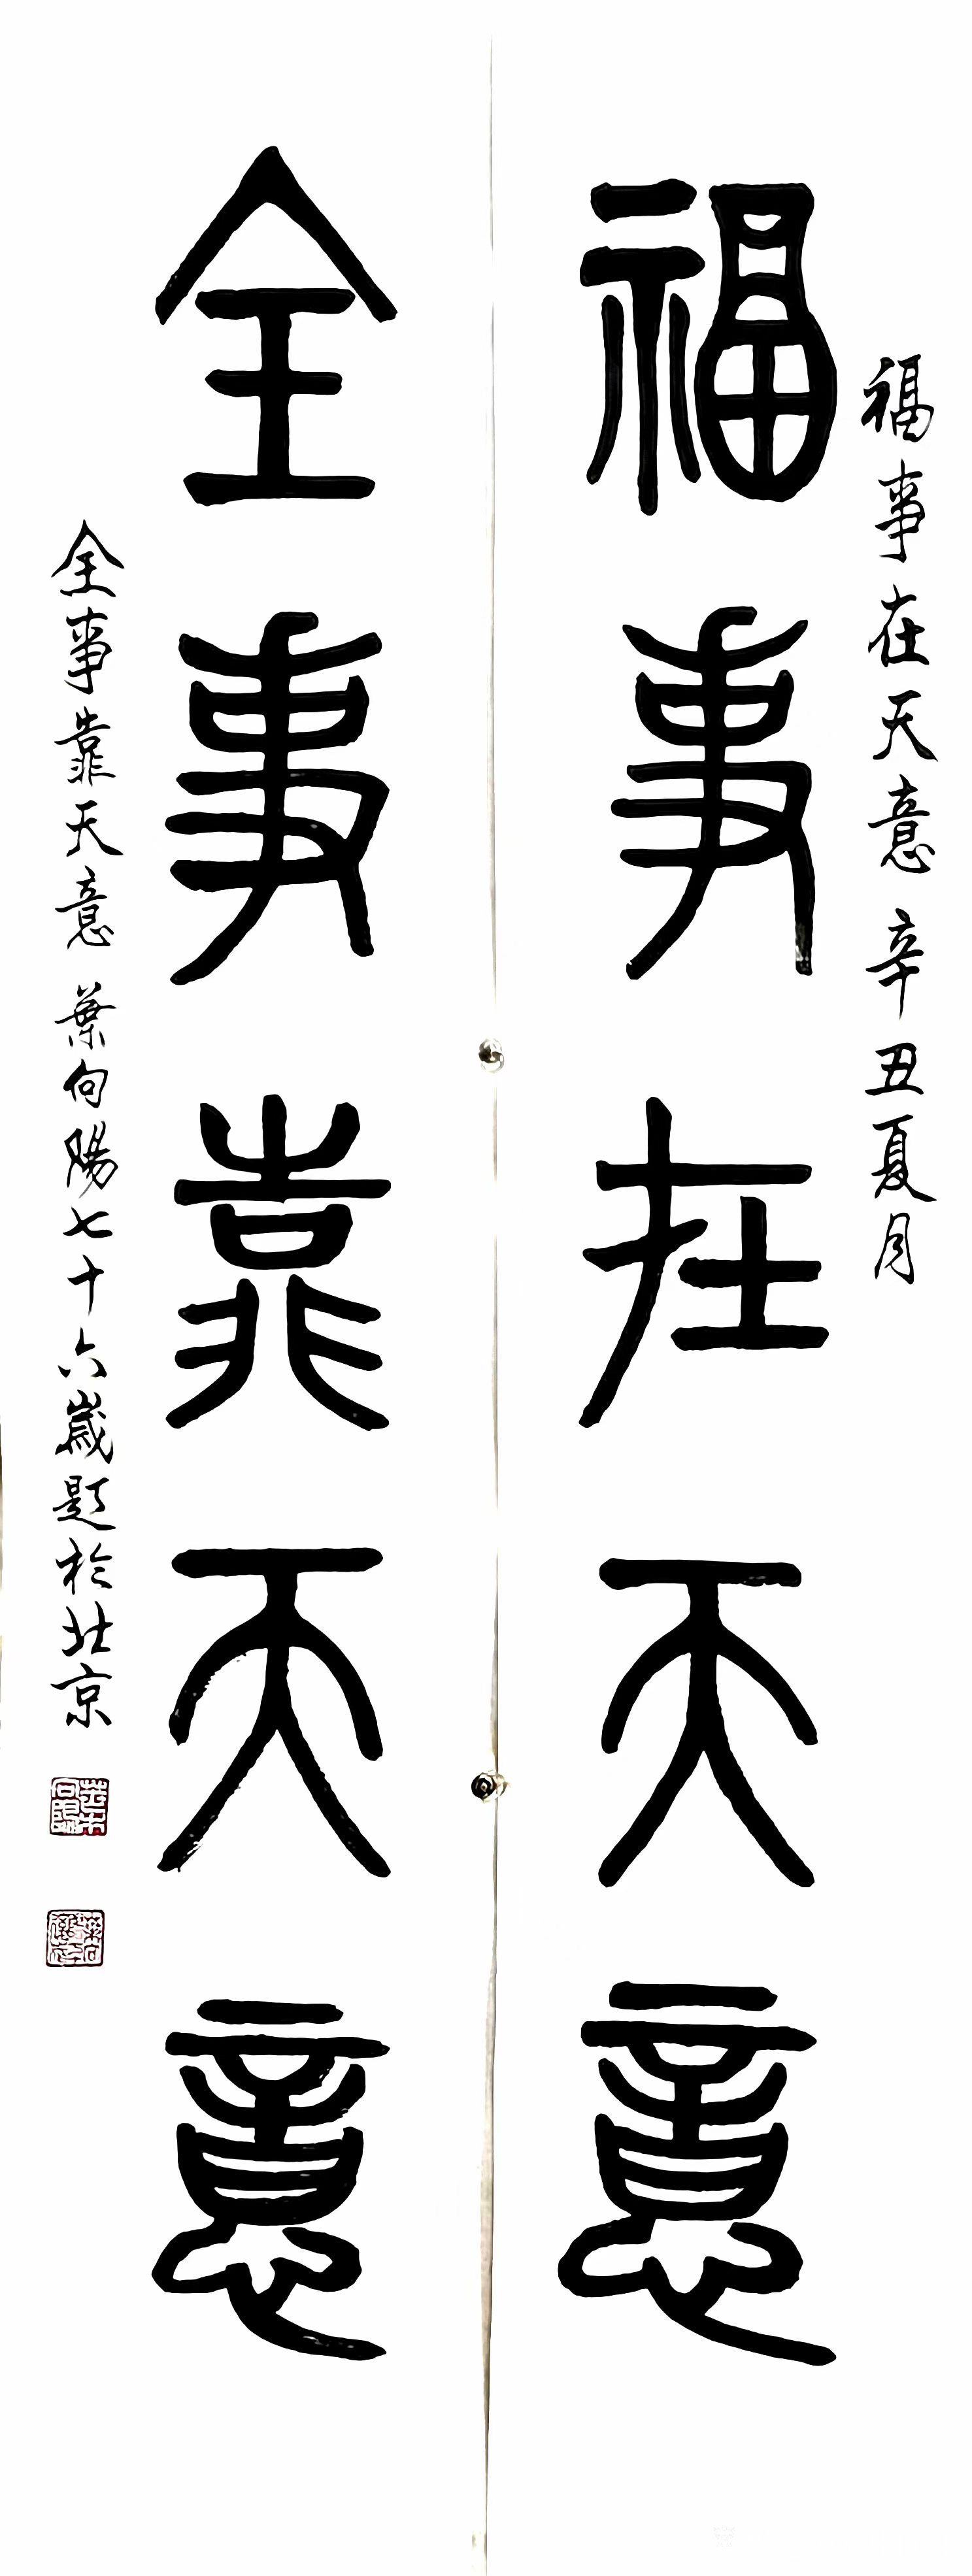 福事在天意辛丑夏月
福事在天意
全事靠天意
全事靠天意葉向陽七十六歲題於北京
葉向陽